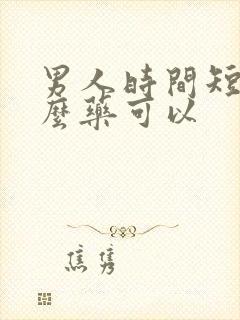 男人時間短
麼藥可以
焦雋